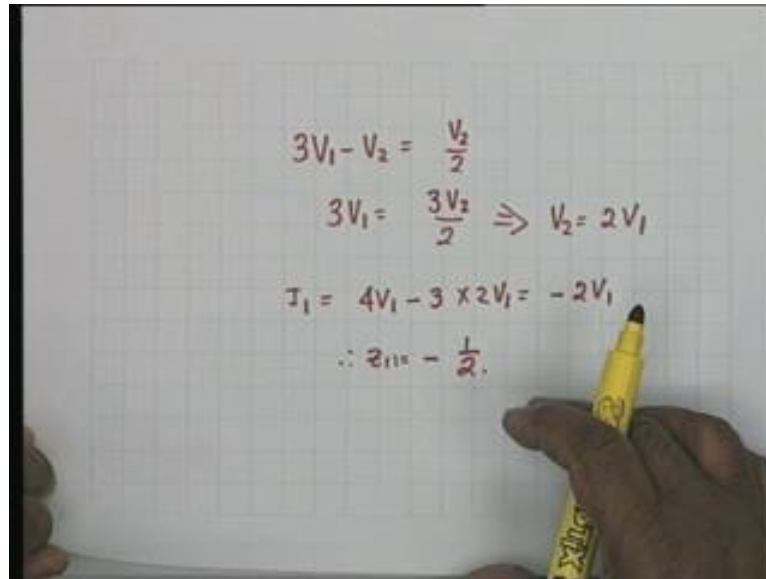 3V₁ - V₂ = V₂/2
3V₁ = 3V₂/2 ⇒ V₂ = 2V₁
I₁ = 4V₁ - 3 × 2V₁ = - 2V₁
∴ z₁₁ = - 1/2.